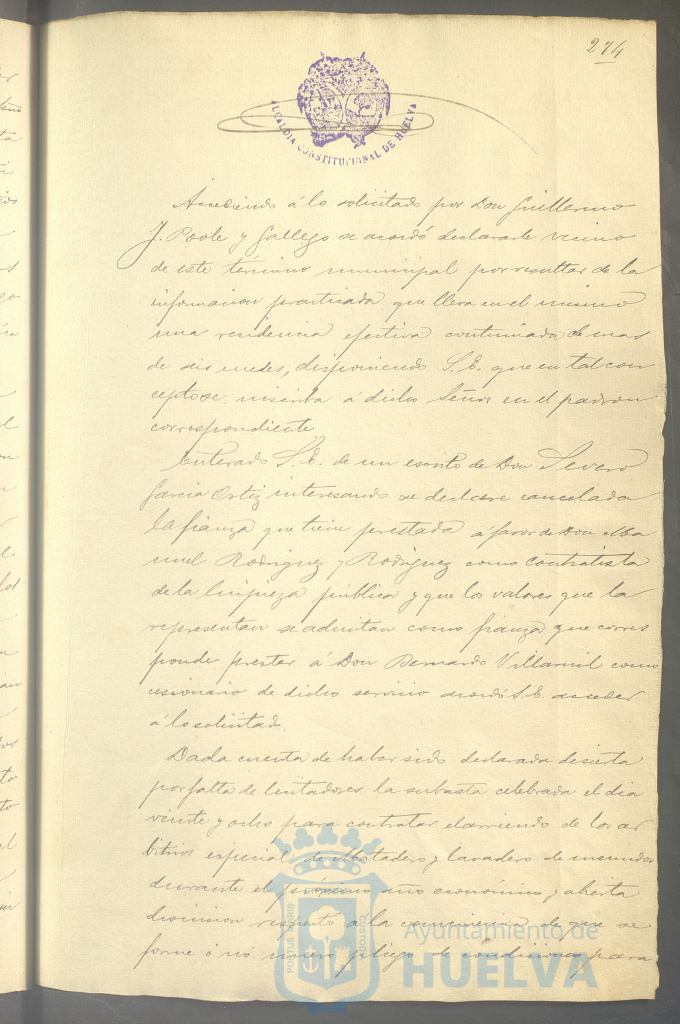 274
ALCALDIA CONSTITUCIONAL DE HUELVA
Accediendo á lo solicitado por Don Guillermo
J. Poole y Gallego se acordó declararle vecino
de este término municipal por resultar de la
informacion practicada que lleva en el mismo
una residencia efectiva continuada de mas
de seis meses, disponiendo S.E. que en tal con
cepto se inscriba á dicho Señor en el padron
correspondiente
Enterado S.E. de un escrito de Don Severo
Garcia Ortiz interesando se declare cancelada
la fianza que tiene prestada á favor de Don Ma
nuel Rodriguez y Rodriguez como contratista
de la limpieza pública y que los valores que la
representan se admitan como fianza que corres
ponde prestar á Don Bernardo Villamil como
cesionario de dicho servicio acordó S.E. acceder
á lo solicitado.
Dada cuenta de haber sido declarada desierta
por falta de licitadores la subasta celebrada el dia
veinte y ocho para contratar el arriendo de los ar
bitrios especial de Matadero y lavadero de menudos
durante el próximo año económico y abierta
discusion respecto a la conveniencia de que se
forme ó nó nuevo pliego de condiciones para
PORTUS MARIS
CUSTODIA
Ayuntamiento de
HUELVA